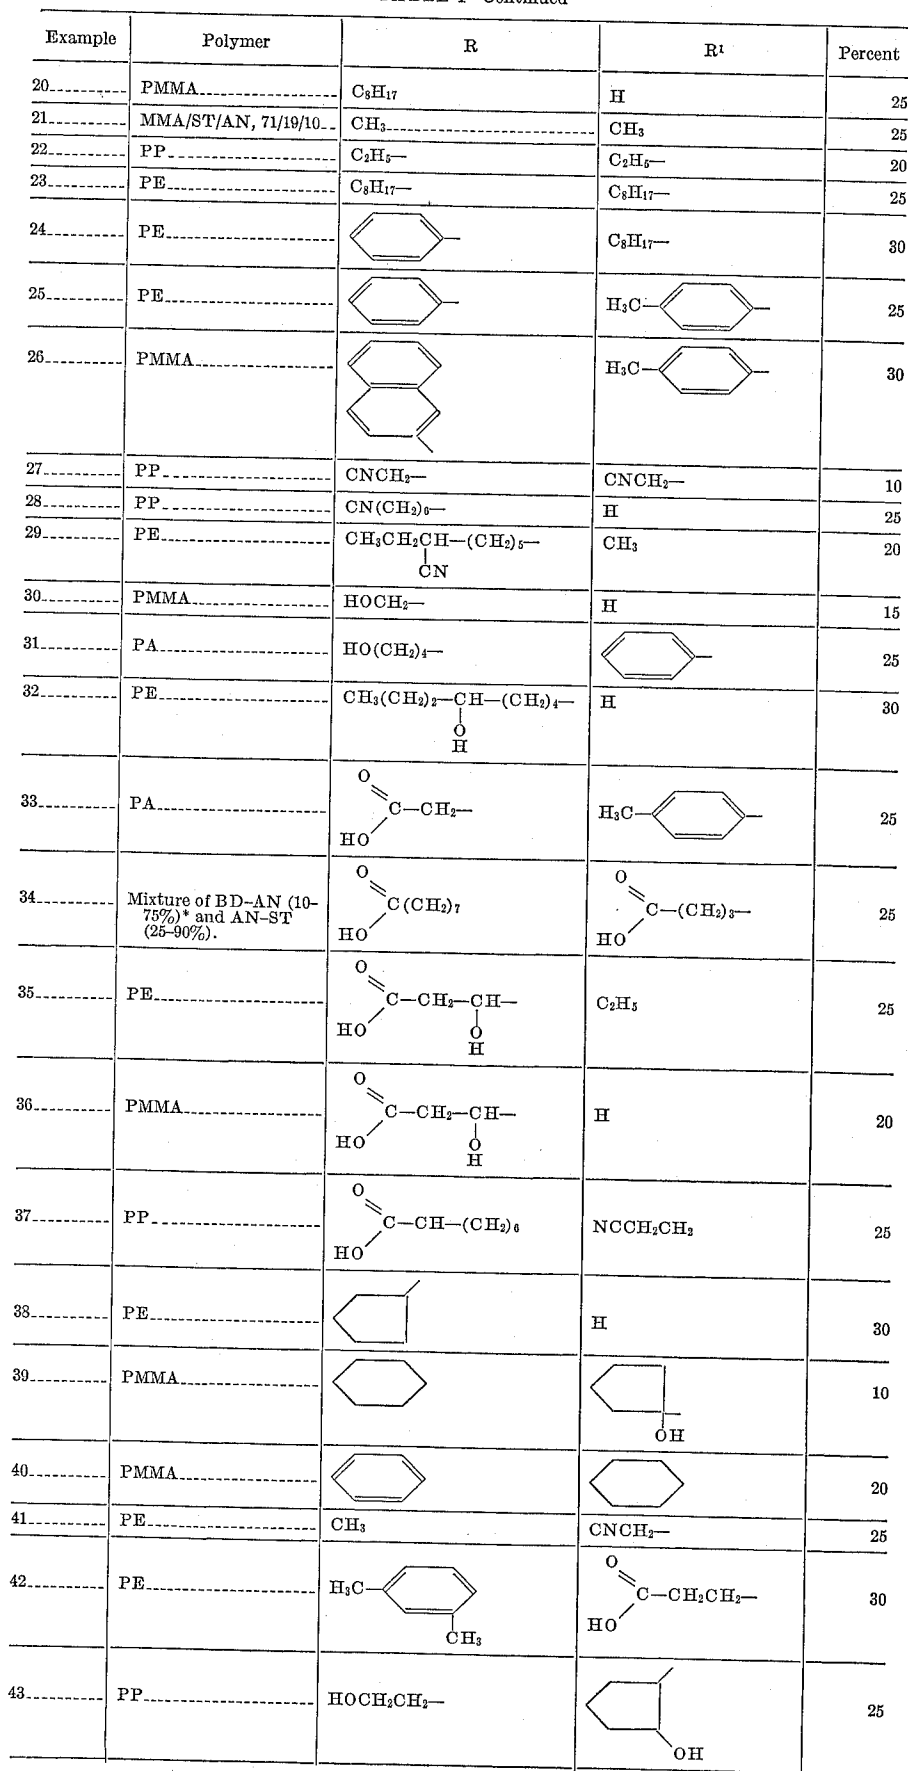 TABLE I—Continued
Example Polymer R R¹ Percent
20 PMMA C₈H₁₇ H 25
21 MMA/ST/AN, 71/19/10 CH₃ CH₃ 25
22 PP C₂H₅— C₂H₅— 20
23 PE C₈H₁₇— C₈H₁₇— 25
24 PE C₈H₁₇— 30
25 PE H₃C— 25
26 PMMA H₃C— 30
27 PP CNCH₂— CNCH₂— 10
28 PP CN(CH₂)₆— H 25
29 PE CH₃CH₂CH—(CH₂)₅— CH₃ 20
CN
30 PMMA HOCH₂— H 15
31 PA HO(CH₂)₄— 25
32 PE CH₃(CH₂)₂—CH—(CH₂)₄— H 30
O
H
O
33 PA C—CH₂— H₃C— 25
HO
O O
34 Mixture of BD-AN (10-
75%)* and AN-ST
(25-90%). C(CH₂)₇ C—(CH₂)₃— 25
HO HO
O
35 PE C—CH₂—CH— C₂H₅ 25
HO O
H
O
36 PMMA C—CH₂—CH— H 20
HO O
H
O
37 PP C—CH—(CH₂)₆ NCCH₂CH₂ 25
HO
38 PE H 30
39 PMMA 10
OH
40 PMMA 20
41 PE CH₃ CNCH₂— 25
O
42 PE H₃C— C—CH₂CH₂— 30
HO
CH₃
43 PP HOCH₂CH₂— 25
OH